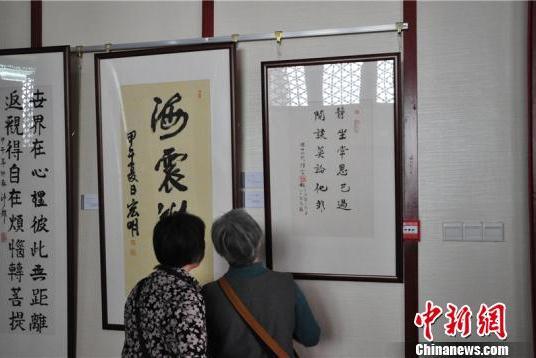 世界在心裡彼此無距離
返觀得自在煩惱轉菩提
海震
甲午夏日宏明
靜坐常思己過
閒談莫論他非
中新网
Chinanews.com